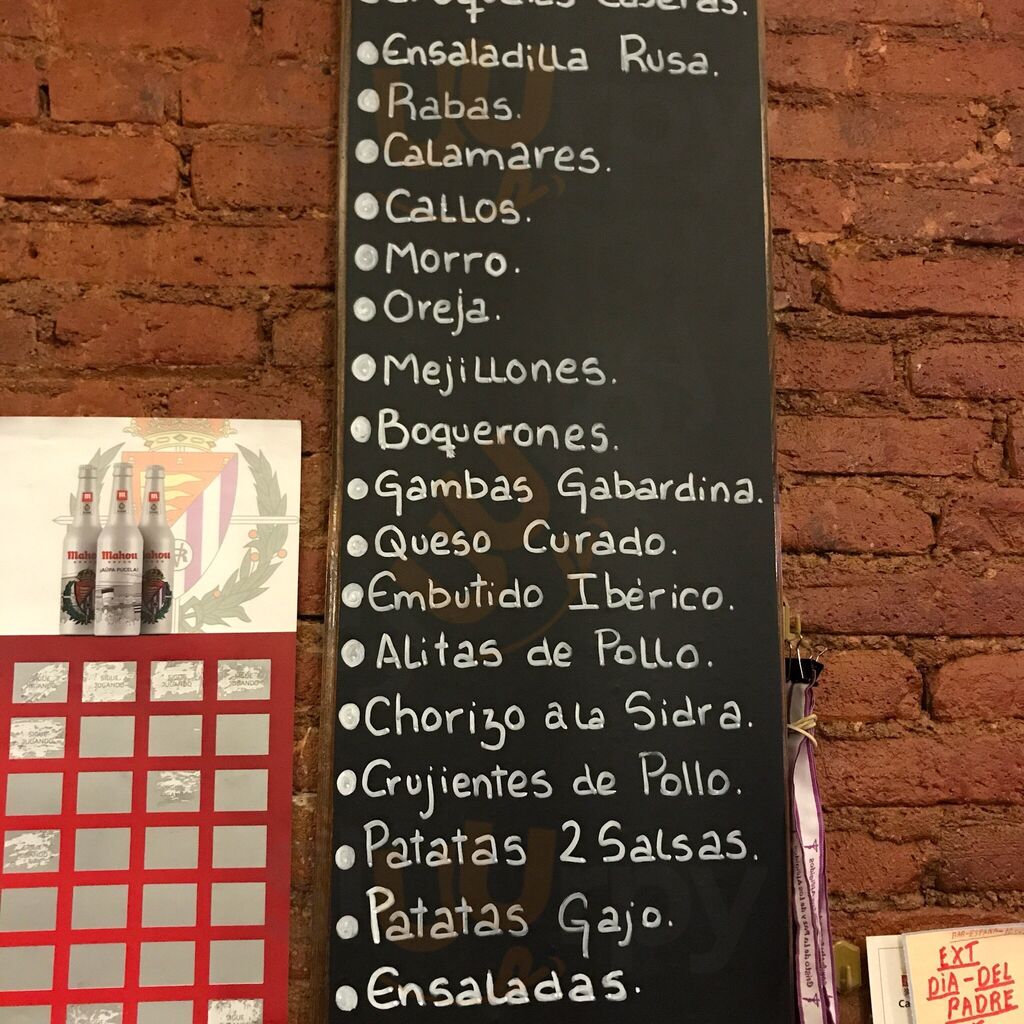 Croquetas Caseras.
Ensaladilla Rusa.
Rabas.
Calamares.
Callos.
Morro.
Oreja.
Mejillones.
Boquerones.
Gambas Gabardina.
Queso Curado.
Embutido Ibérico.
Alitas de Pollo.
Chorizo a la Sidra.
Crujientes de Pollo.
Patatas 2 Salsas.
Patatas Gajo.
Ensaladas.
Mahou
Mahou
Mahou
¡AÚPA PUCELA!
SIGUE JUGANDO
SIGUE JUGANDO
SIGUE JUGANDO
SIGUE JUGANDO
SIGUE JUGANDO
JUGANDO
SIGUE
EXT
DÍA-DEL
PADRE